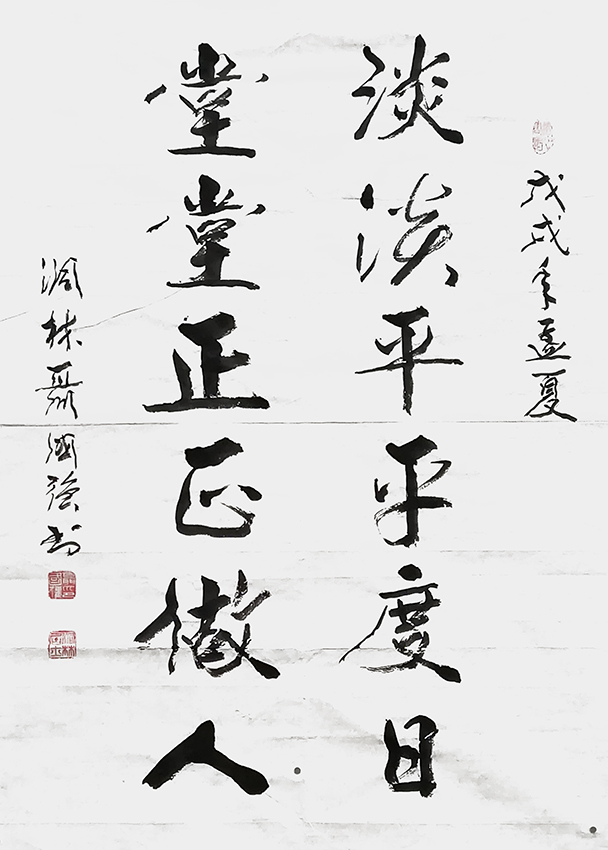 戊戌年孟夏
淡淡平平度日
堂堂正正做人
林聂國强书